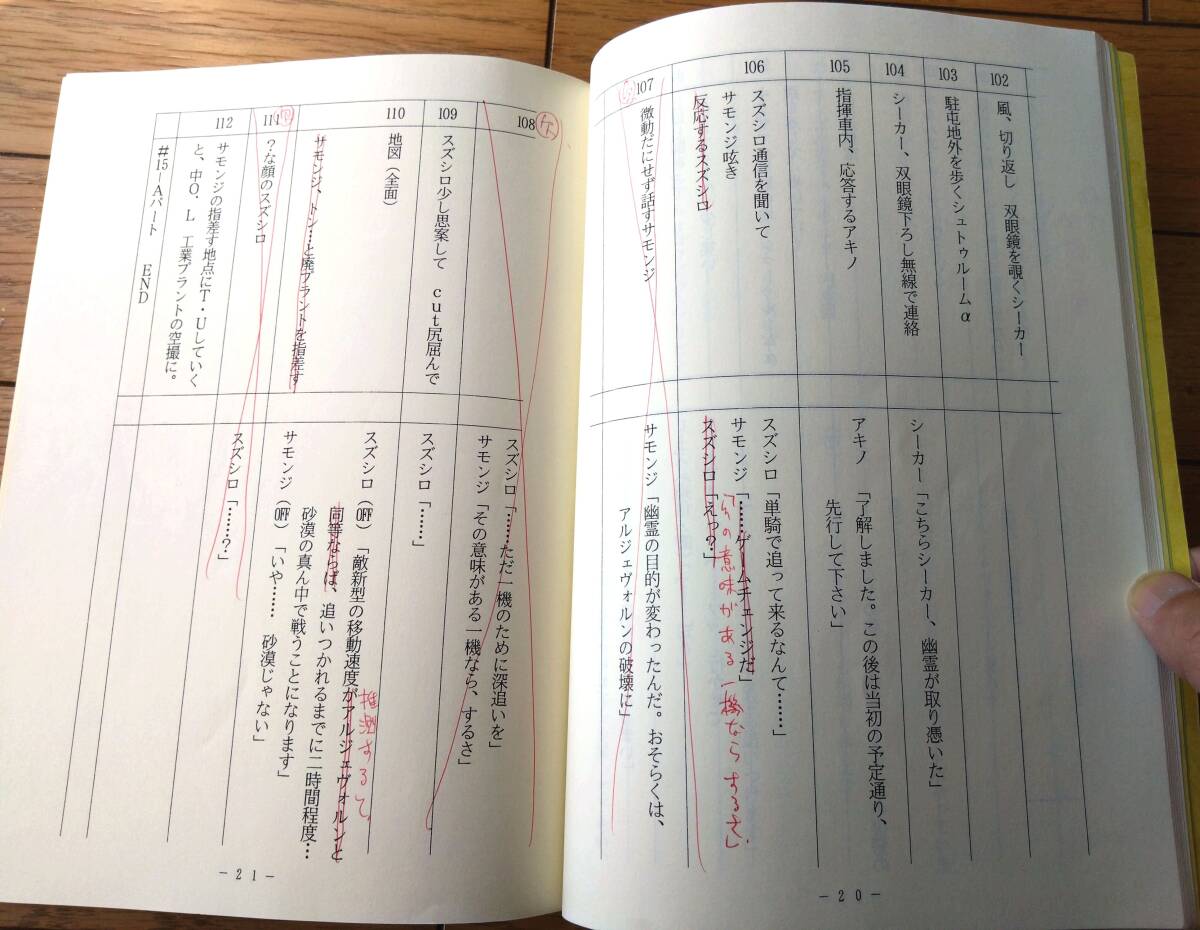 102
風、切り返し　双眼鏡を覗くシーカー
103
駐屯地外を歩くシュトゥルームα
104
シーカー、双眼鏡下ろし無線で連絡
シーカー「こちらシーカー、幽霊が取り憑いた」
105
指揮車内、応答するアキノ
アキノ　「了解しました。この後は当初の予定通り、
先行して下さい」
106
スズシロ通信を聞いて
サモンジ呟き
反応するスズシロ
スズシロ「単騎で追って来るなんて……」
サモンジ「……ゲームチェンジだ」
「その意味がある一機ならするさ」
スズシロ「えっ？」
107
微動だにせず話すサモンジ
サモンジ「幽霊の目的が変わったんだ。おそらくは、
アルジェヴォルンの破壊に」
－20－
108
スズシロ「……ただ一機のために深追いを」
サモンジ「その意味がある一機なら、するさ」
109
スズシロ少し思案して　cut尻屈んで
スズシロ「……」
110
地図（全面）
サモンジ、トン…と廃プラントを指差す
スズシロ（OFF）「敵新型の移動速度がアルジェヴォルンと
推測するて、
同等ならば、追いつかれるまでに二時間程度…
砂漠の真ん中で戦うことになります」
サモンジ（OFF）「いや……　砂漠じゃない」
111
？な顔のスズシロ
スズシロ「……？」
112
サモンジの指差す地点にT・Uしていく
と、中O．L　工業プラントの空撮に。
＃15－Aパート　　END
－21－